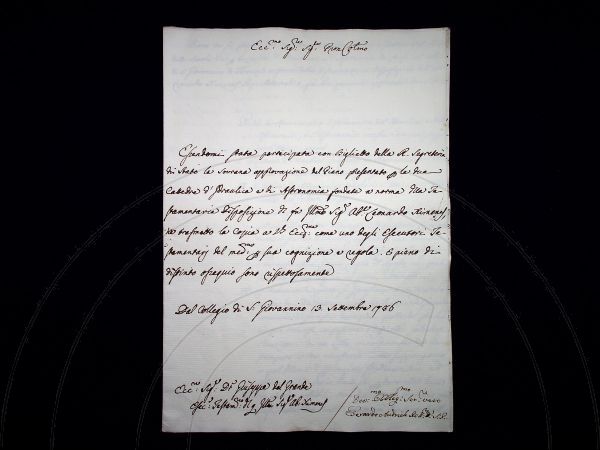 Ecc.mo Sig.re Sig.re Pron Col.mo
Essendomi stata partecipata con Biglietto della R. Segreteria
di Stato la Sovrana approvazione del Piano presentato p le due
Catedre d'Idraulica e di Astronomia fondate a norma della Te-
stamentaria Disposizione di fu Ill.mo Sig.r Ab.e Leonardo Ximenes,
ne trasmetto la Copia a V. Ecc.za come uno degli Esecutori Te-
stamentarj del med.mo p sua cognizione e regola. E pieno di
distinto ossequio sono rispettosamente
Dal Collegio di S. Giovannino 13. Settembre 1786
Ecc.mo Sig.r D.r Giuseppe del Grande
Esec. Testam.rio Ill.mo Sig.r Ab. Ximenes
Dev.mo Obblig.mo Ser.re vero